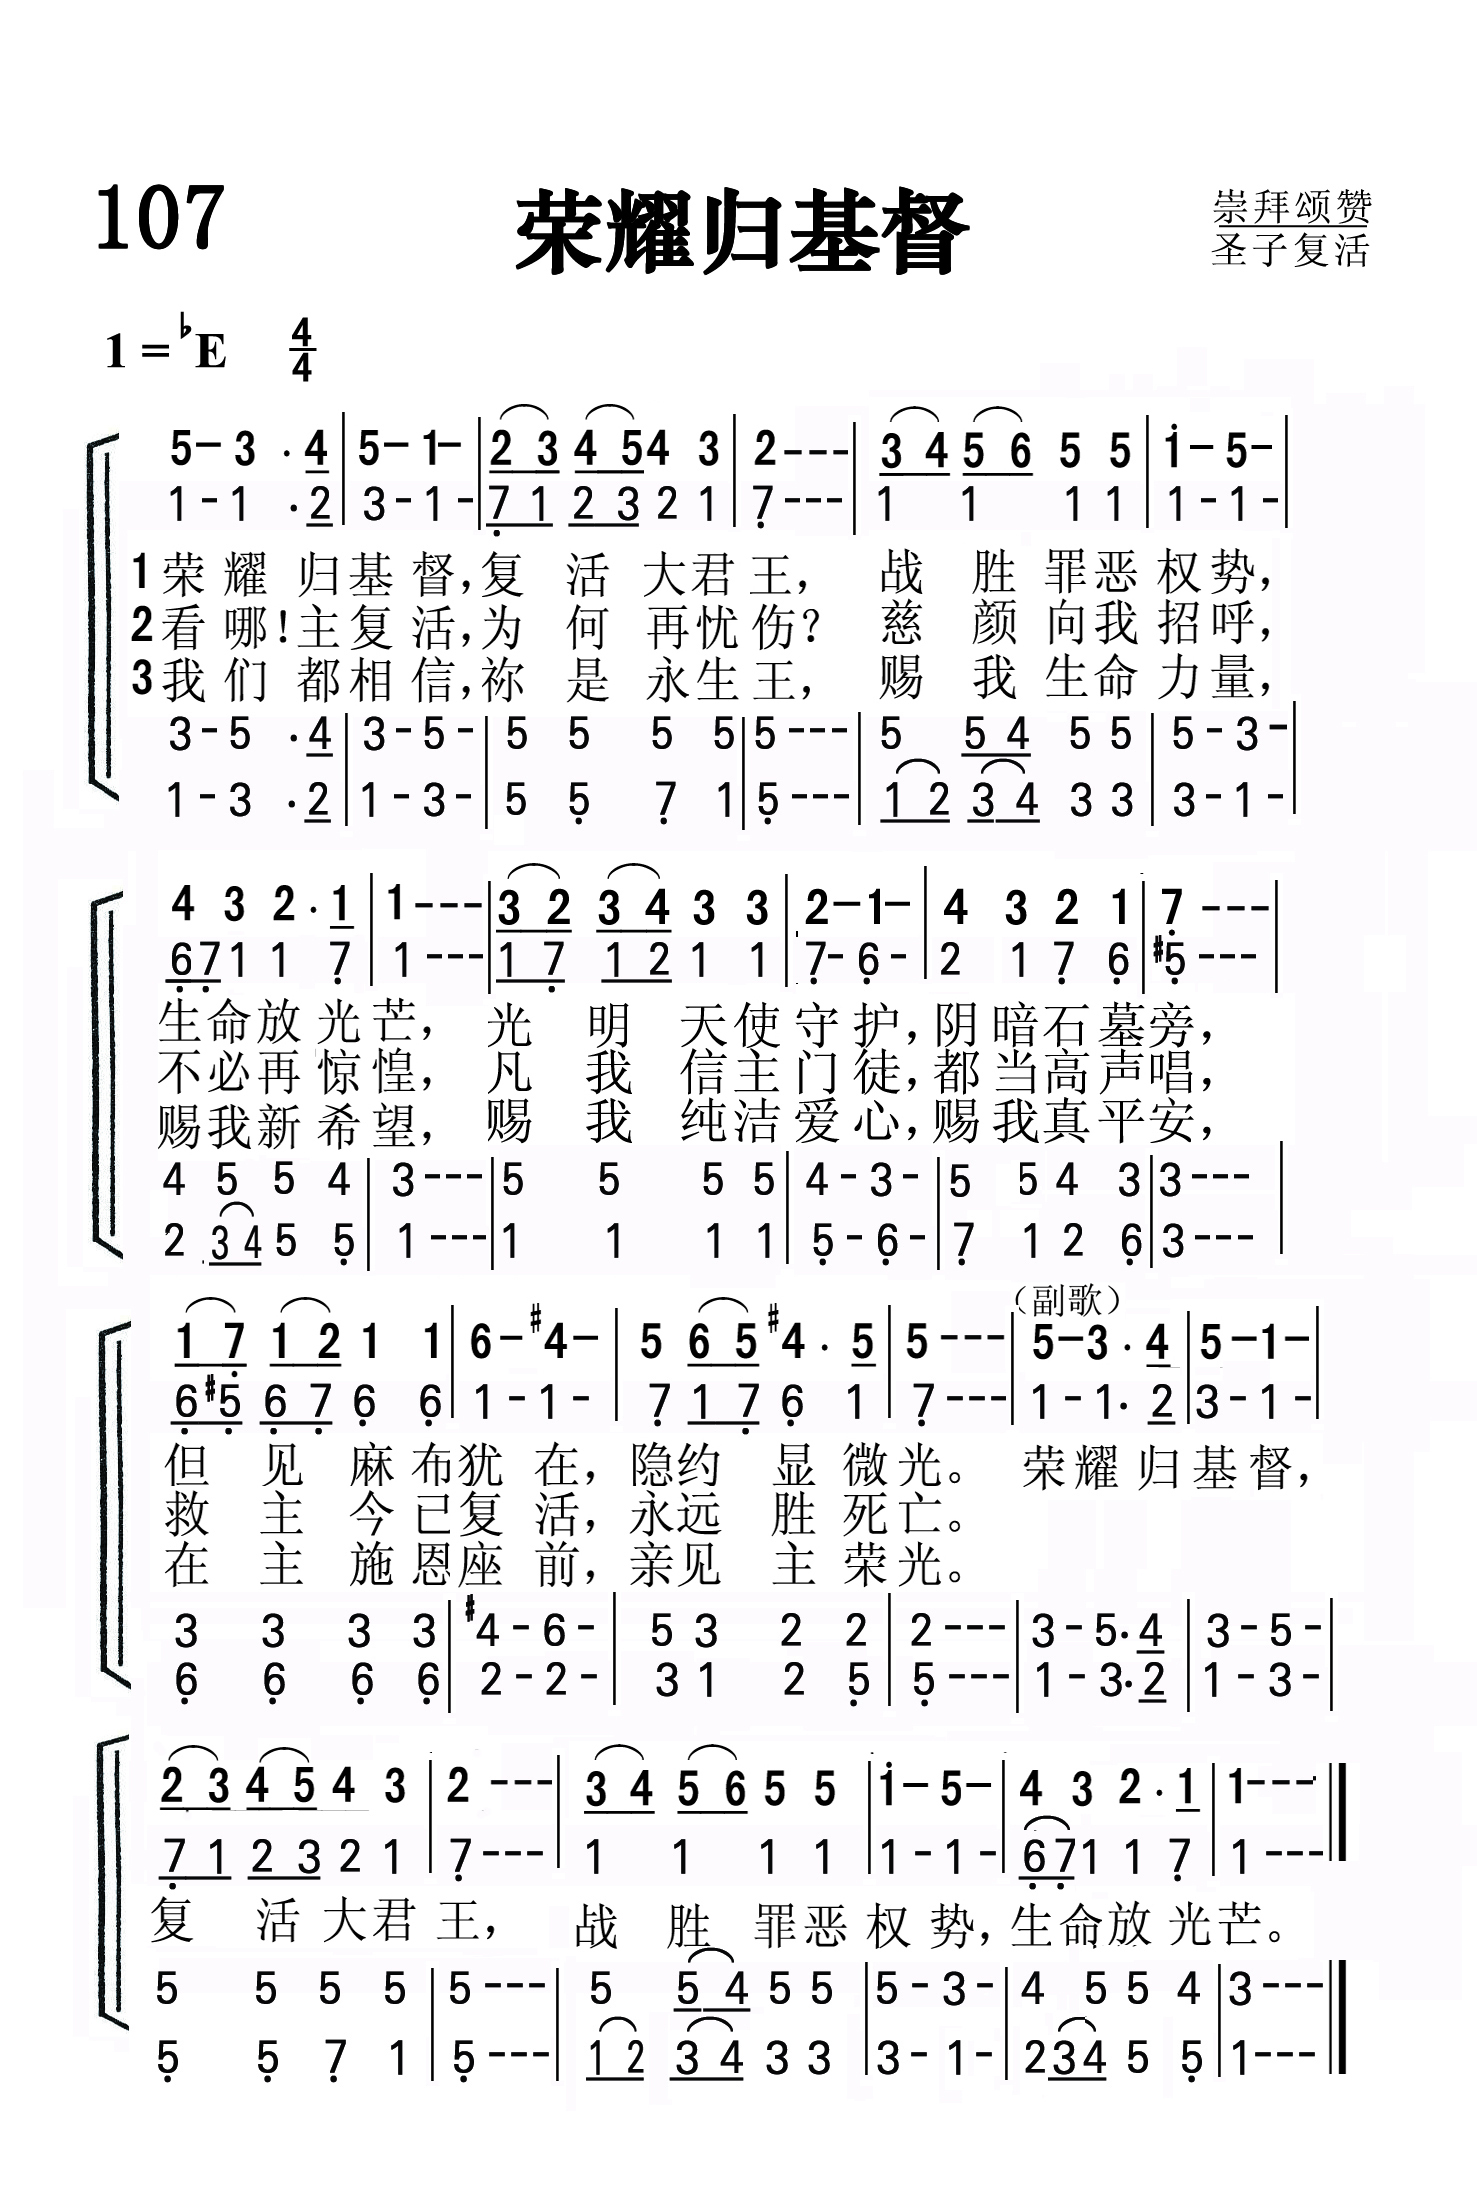 107
荣耀归基督
崇拜颂赞
圣子复活
1=♭E 4/4
5– 3 · 4 | 5– 1– | 2 3 4 5 4 3 | 2--- | 3 4 5 6 5 5 | i– 5– |
1-1 · 2 | 3-1- | 7 1 2 3 2 1 | 7--- | 1 1 1 1 | 1-1- |
1 荣耀归基督，复活大君王，战胜罪恶权势，
2 看哪！主复活，为何再忧伤？慈颜向我招呼，
3 我们都相信，祢是永生王，赐我生命力量，
3-5 · 4 | 3-5- | 5 5 5 5 | 5--- | 5 5 4 5 5 | 5-3- |
1-3 · 2 | 1-3- | 5 5 7 1 | 5--- | 1 2 3 4 3 3 | 3-1- |
4 3 2 · 1 | 1--- | 3 2 3 4 3 3 | 2–1– | 4 3 2 1 | 7--- |
6 7 1 1 7 | 1--- | 1 7 1 2 1 1 | 7-6- | 2 1 7 6 | #5--- |
生命放光芒，光明天使守护，阴暗石墓旁，
不必再惊惶，凡我信主门徒，都当高声唱，
赐我新希望，赐我纯洁爱心，赐我真平安，
4 5 5 4 | 3--- | 5 5 5 5 | 4-3- | 5 5 4 3 | 3--- |
2 3 4 5 5 | 1--- | 1 1 1 1 | 5-6- | 7 1 2 6 | 3--- |
（副歌）
1 7 1 2 1 1 | 6– #4– | 5 6 5 #4 · 5 | 5--- | 5–3 · 4 | 5–1– |
6 #5 6 7 6 6 | 1-1- | 7 1 7 6 1 | 7--- | 1-1· 2 | 3-1- |
但见麻布犹在，隐约显微光。荣耀归基督，
救主今已复活，永远胜死亡。
在主施恩座前，亲见主荣光。
3 3 3 3 | #4-6- | 5 3 2 2 | 2--- | 3-5· 4 | 3-5- |
6 6 6 6 | 2-2- | 3 1 2 5 | 5--- | 1-3· 2 | 1-3- |
2 3 4 5 4 3 | 2 --- | 3 4 5 6 5 5 | i–5– | 4 3 2 · 1 | 1--- ‖
7 1 2 3 2 1 | 7--- | 1 1 1 1 | 1-1- | 6 7 1 1 7 | 1--- ‖
复活大君王，战胜罪恶权势，生命放光芒。
5 5 5 5 | 5--- | 5 5 4 5 5 | 5-3- | 4 5 5 4 | 3--- ‖
5 5 7 1 | 5--- | 1 2 3 4 3 3 | 3-1- | 2 3 4 5 5 | 1--- ‖